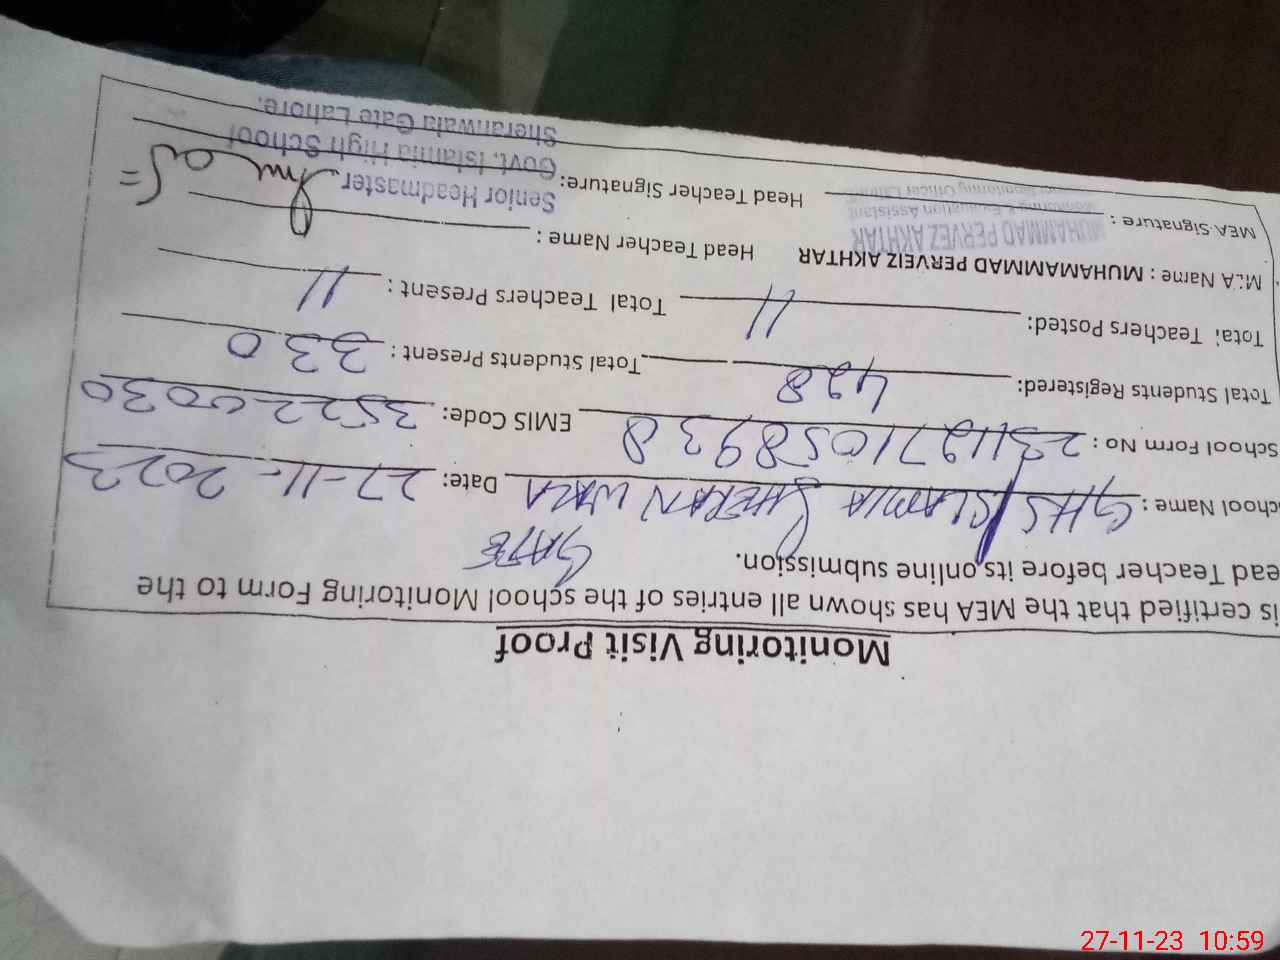 Monitoring Visit Proof
is certified that the MEA has shown all entries of the school Monitoring Form to the
ead Teacher before its online submission.
GATE
chool Name : GHS ISLAMIA SHERAN WALA Date: 27-11-2023
School Form No : EMIS Code: 35220030
Total Students Registered: 428 Total Students Present : 330
Total Teachers Posted: 11 Total Teachers Present : 11
MEA Name : MUHAMAMMAD PERVEIZ AKHTAR Head Teacher Name :
MUHAMMAD PERVEZ AKHTAR
Monitoring & Evaluation Assistant
MEA Signature : Head Teacher Signature:
Senior Headmaster
Govt. Islamia High School
Sheranwala Gate Lahore.
27-11-23 10:59